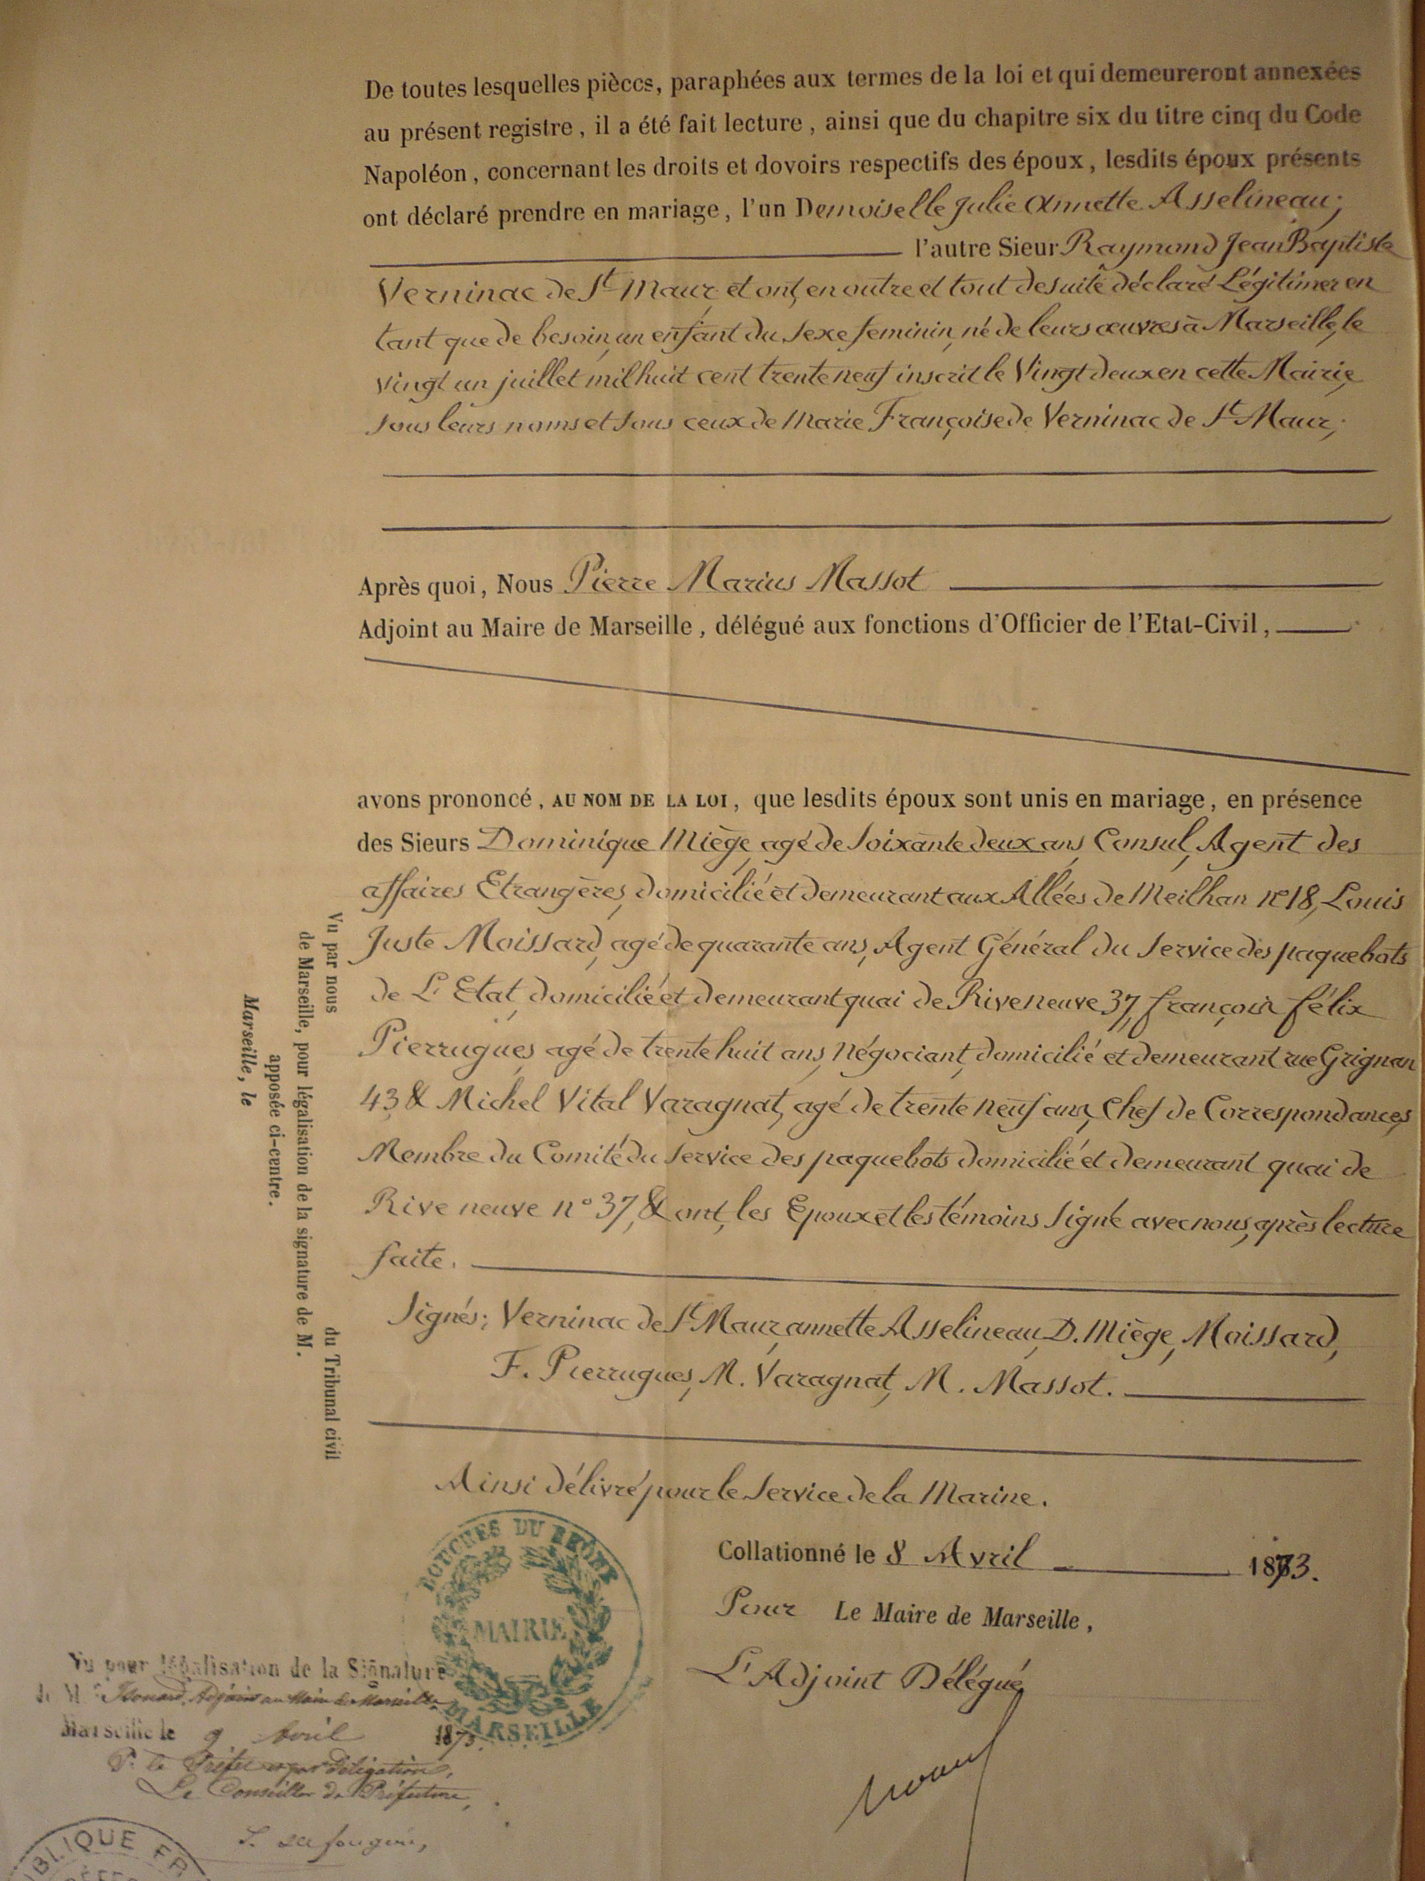 De toutes lesquelles pièces, paraphées aux termes de la loi et qui demeureront annexées
au présent registre, il a été fait lecture, ainsi que du chapitre six du titre cinq du Code
Napoléon, concernant les droits et dovoirs respectifs des époux, lesdits époux présents
ont déclaré prendre en mariage, l'un Demoiselle Julie Annette Asselineau;
l'autre Sieur Raymond Jean Baptiste
Verninac de St Maur, et ont, en outre et tout de suite déclaré Légitimer en
tant que de besoin, un enfant du sexe feminin, né de leurs œuvres à Marseille, le
vingt un juillet mil huit cent trente neuf inscrit le Vingt deux en cette Mairie,
sous leurs noms et sous ceux de Marie Françoise de Verninac de St Maur;
Après quoi, Nous Pierre Marius Massot
Adjoint au Maire de Marseille, délégué aux fonctions d'Officier de l'Etat-Civil,
avons prononcé, AU NOM DE LA LOI, que lesdits époux sont unis en mariage, en présence
des Sieurs Dominique Miège, agé de soixante deux ans, Consul, Agent des
affaires Etrangères, domicilié et demeurant aux Allées de Meilhan n° 18, Louis
Juste Moissard, agé de quarante ans, Agent Général du service des paquebots
de L'Etat, domicilié et demeurant quai de Rive neuve 37, françois félix
Pierrugues, agé de trente huit ans, Négociant, domicilié et demeurant rue Grignan
43, & Michel Vital Varagnat, agé de trente neuf ans, Chef de Correspondances,
Membre du Comité du service des paquebots domicilié et demeurant quai de
Rive neuve n° 37, & ont, les Epoux et les témoins signé avec nous, après lecture
faite.
Signés; Verninac de St Maur, annette Asselineau, D. Miège, Moissard,
F. Pierrugues, M. Varagnat, M. Massot.
Ainsi délivré pour le service de la Marine.
Collationné le 8 Avril 1873.
Pour Le Maire de Marseille,
L'Adjoint Délégué
Vu par nous du Tribunal civil
de Marseille, pour légalisation de la signature de M.
apposée ci-centre.
Marseille, le
BOUCHES DU RHÔNE
MAIRIE
MARSEILLE
Vu pour légalisation de la Signature
de M. Adjoint au Maire de Marseille
Marseille le 9 Avril 1873.
P. le Préfet et par Délégation,
Le Conseiller de Préfecture,
BLIQUE FR